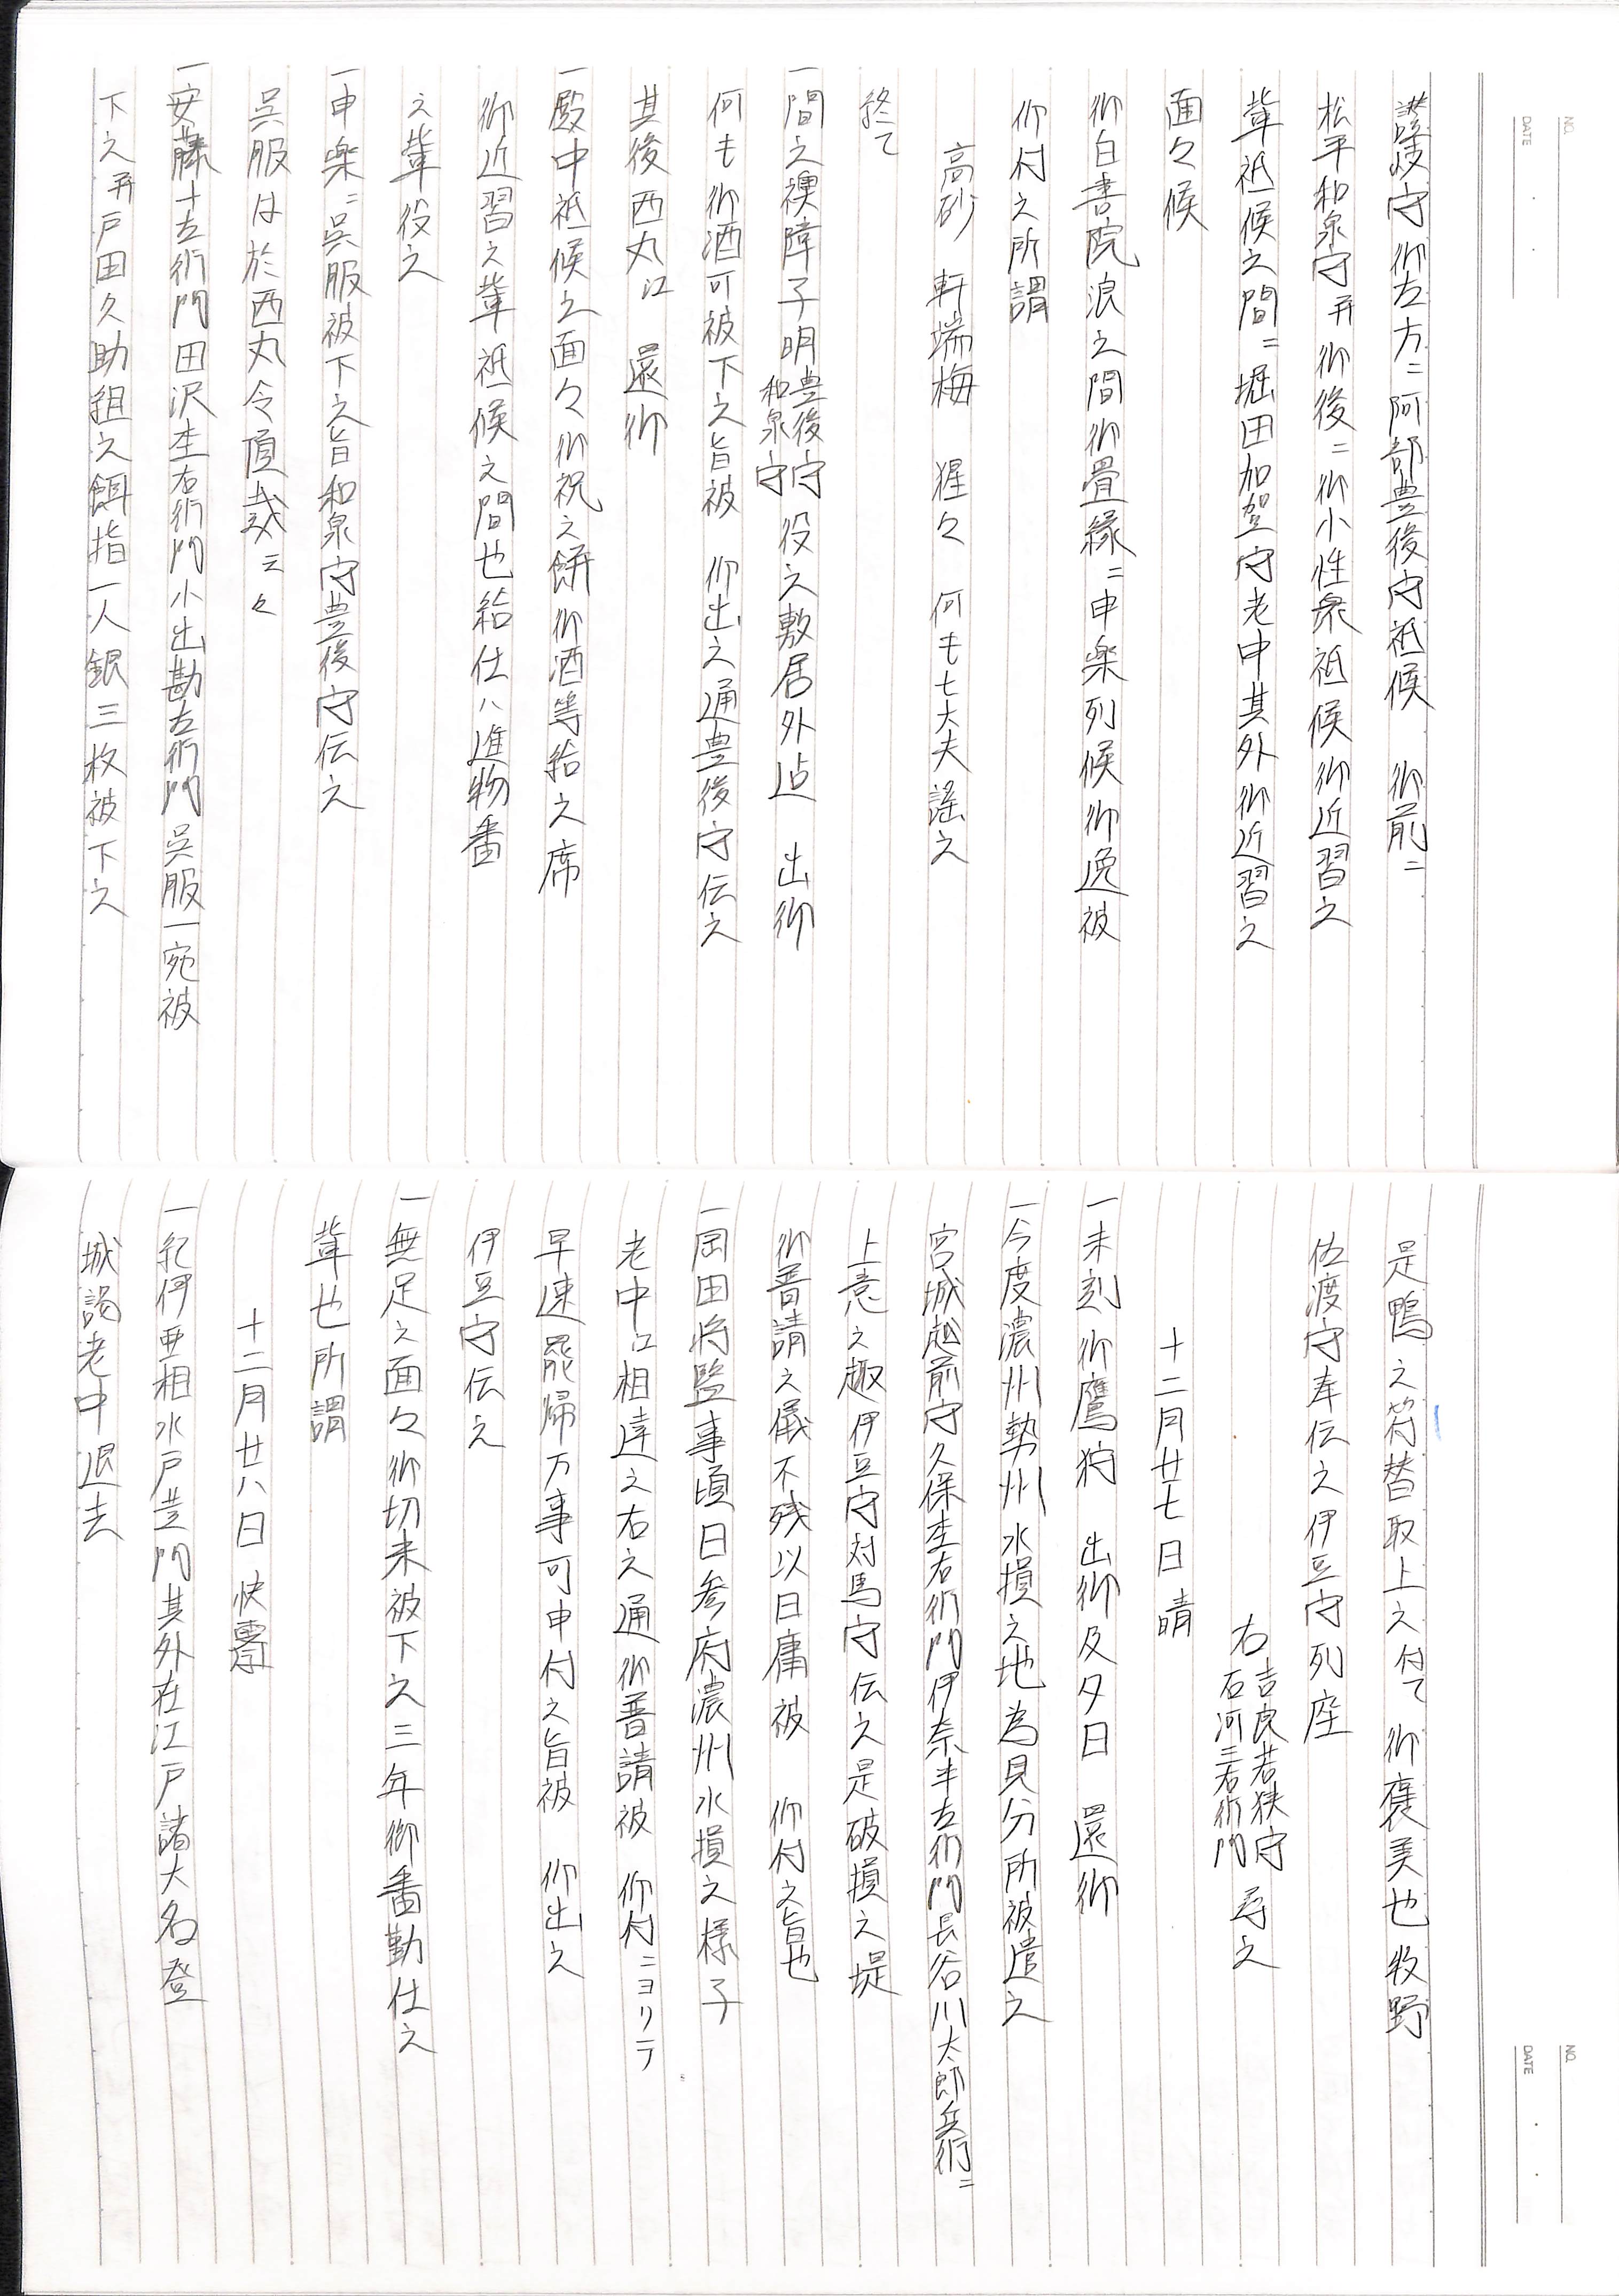 讃岐守御左方ニ阿部豊後守祗候 御前ニ
松平和泉守并御後ニ御小性衆祗候御近習之
輩祗候之間ニ堀田加賀守老中其外御近習之
面々候
御白書院浪之間御畳縁ニ申楽列候御逸被
仰付之所謂
高砂 軒端梅 猩々 何も七大夫謡之
終て
一間之襖障子明豊後守和泉守役之敷居外迠 出御
何も御酒可被下之旨被 仰出之通豊後守伝之
其後西丸江 還御
一殿中祗候之面々御祝之餅御酒等給之席
御近習之輩祗候之間也給仕ハ進物番
之輩役之
一申楽ニ呉服被下之旨和泉守豊後守伝之
呉服は於西丸令頂戴云々
一安藤十左衛門田沢杢右衛門小出勘左衛門呉服一宛被
下之并戸田久助組之餌指一人銀三枚被下之
NO.
DATE
是鴨之符替取上之付て御褒美也牧野
佐渡守奉伝之伊豆守列座
右吉良若狭守石河三右衛門尋之
十二月廿七日晴
一未刻御鷹狩 出御及夕日 還御
一今度濃州勢州水損之地為見分所被遣之
宮城越前守久保杢右衛門伊奈半左衛門長谷川太郎兵衛ニ
上意之趣伊豆守対馬守伝之是破損之堤
御普請之儀不残以日庸被 仰付之旨也
一岡田将監事頃日参府濃州水損之様子
老中江相達之右之通御普請被 仰付ニヨリテ
早速罷帰万事可申付之旨被 仰出之
伊豆守伝之
一無足之面々御切米被下之三年御番勤仕之
輩也所謂
十二月廿八日快霽
一紀伊亜相水戸黄門其外在江戸諸大名登
城謁老中退去
NO.
DATE